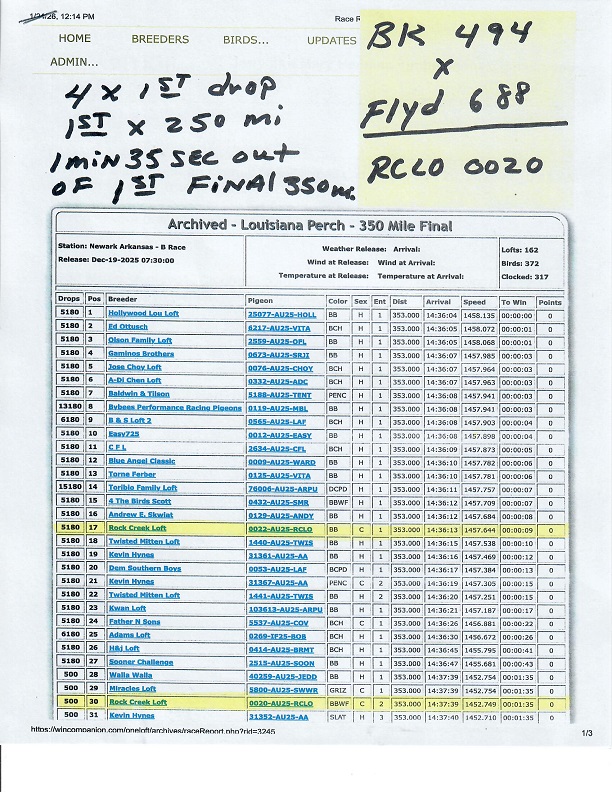 1/24/26, 12:14 PM
Race R
HOME BREEDERS BIRDS... UPDATES
ADMIN...
BK 494
x
Flyd 688
RCLO 0020
4 x 1ST drop
1ST x 250 mi
1min 35 SEC out
OF 1ST FINAL 350mi.
Archived - Louisiana Perch - 350 Mile Final
Station: Newark Arkansas - B Race
Release: Dec-19-2025 07:30:00
Weather Release: Arrival:
Wind at Release: Wind at Arrival:
Temperature at Release: Temperature at Arrival:
Lofts: 162
Birds: 372
Clocked: 317
Drops Pos Breeder Pigeon Color Sex Ent Dist Arrival Speed To Win Points
5180 1 Hollywood Lou Loft 25077-AU25-HOLL BB H 1 353.000 14:36:04 1458.135 00:00:00 0
5180 2 Ed Ottusch 6217-AU25-VITA BCH H 1 353.000 14:36:05 1458.072 00:00:01 0
5180 3 Olson Family Loft 2559-AU25-OFL BB H 1 353.000 14:36:05 1458.068 00:00:01 0
5180 4 Gaminos Brothers 0673-AU25-SRJI BB H 1 353.000 14:36:07 1457.985 00:00:03 0
5180 5 Jose Choy Loft 0076-AU25-CHOY BCH H 1 353.000 14:36:07 1457.964 00:00:03 0
5180 6 A-Di Chen Loft 0332-AU25-ADC BCH H 1 353.000 14:36:07 1457.963 00:00:03 0
5180 7 Baldwin & Tilson 5188-AU25-TENT PENC H 1 353.000 14:36:08 1457.941 00:00:03 0
13180 8 Bybees Performance Racing Pigeons 0119-AU25-MBL BB H 1 353.000 14:36:08 1457.941 00:00:03 0
6180 9 B & S Loft 2 0565-AU25-LAF BCH H 1 353.000 14:36:08 1457.903 00:00:04 0
5180 10 Easy725 0012-AU25-EASY BB H 1 353.000 14:36:08 1457.898 00:00:04 0
5180 11 C F L 2634-AU25-CFL BCH H 1 353.000 14:36:09 1457.873 00:00:05 0
5180 12 Blue Angel Classic 0009-AU25-WARD BB H 1 353.000 14:36:10 1457.782 00:00:06 0
5180 13 Torne Ferber 0125-AU25-VITA BB H 1 353.000 14:36:10 1457.781 00:00:06 0
15180 14 Toribio Family Loft 76006-AU25-ARPU DCPD H 1 353.000 14:36:11 1457.757 00:00:07 0
5180 15 4 The Birds Scott 0432-AU25-SMR BBWF H 1 353.000 14:36:12 1457.709 00:00:07 0
5180 16 Andrew E. Skwiat 0129-AU25-ANDY BB H 1 353.000 14:36:12 1457.684 00:00:08 0
5180 17 Rock Creek Loft 0022-AU25-RCLO BB C 1 353.000 14:36:13 1457.644 00:00:09 0
5180 18 Twisted Mitten Loft 1440-AU25-TWIS BB H 1 353.000 14:36:15 1457.538 00:00:10 0
5180 19 Kevin Hynes 31361-AU25-AA BB H 1 353.000 14:36:16 1457.469 00:00:12 0
5180 20 Dem Southern Boys 0053-AU25-LAF BCPD H 1 353.000 14:36:17 1457.384 00:00:13 0
5180 21 Kevin Hynes 31367-AU25-AA PENC C 2 353.000 14:36:19 1457.305 00:00:15 0
5180 22 Twisted Mitten Loft 1441-AU25-TWIS BB H 2 353.000 14:36:20 1457.251 00:00:15 0
5180 23 Kwan Loft 103613-AU25-ARPU BB H 1 353.000 14:36:21 1457.187 00:00:17 0
5180 24 Father N Sons 5537-AU25-COV BCH C 1 353.000 14:36:26 1456.881 00:00:22 0
6180 25 Adams Loft 0269-IF25-BOB BCH H 1 353.000 14:36:30 1456.672 00:00:26 0
5180 26 H&J Loft 0414-AU25-BRMT BCH H 1 353.000 14:36:45 1455.795 00:00:41 0
5180 27 Sooner Challenge 2515-AU25-SOON BB H 1 353.000 14:36:47 1455.681 00:00:43 0
500 28 Walla Walla 40259-AU25-JEDD BB H 1 353.000 14:37:39 1452.754 00:01:35 0
500 29 Miracles Loft 5800-AU25-SWWR GRIZ C 1 353.000 14:37:39 1452.754 00:01:35 0
500 30 Rock Creek Loft 0020-AU25-RCLO BBWF C 2 353.000 14:37:39 1452.749 00:01:35 0
500 31 Kevin Hynes 31352-AU25-AA SLAT H 3 353.000 14:37:40 1452.710 00:01:35 0
https://wincompanion.com/oneloft/archives/raceReport.php?rid=3245
1/3